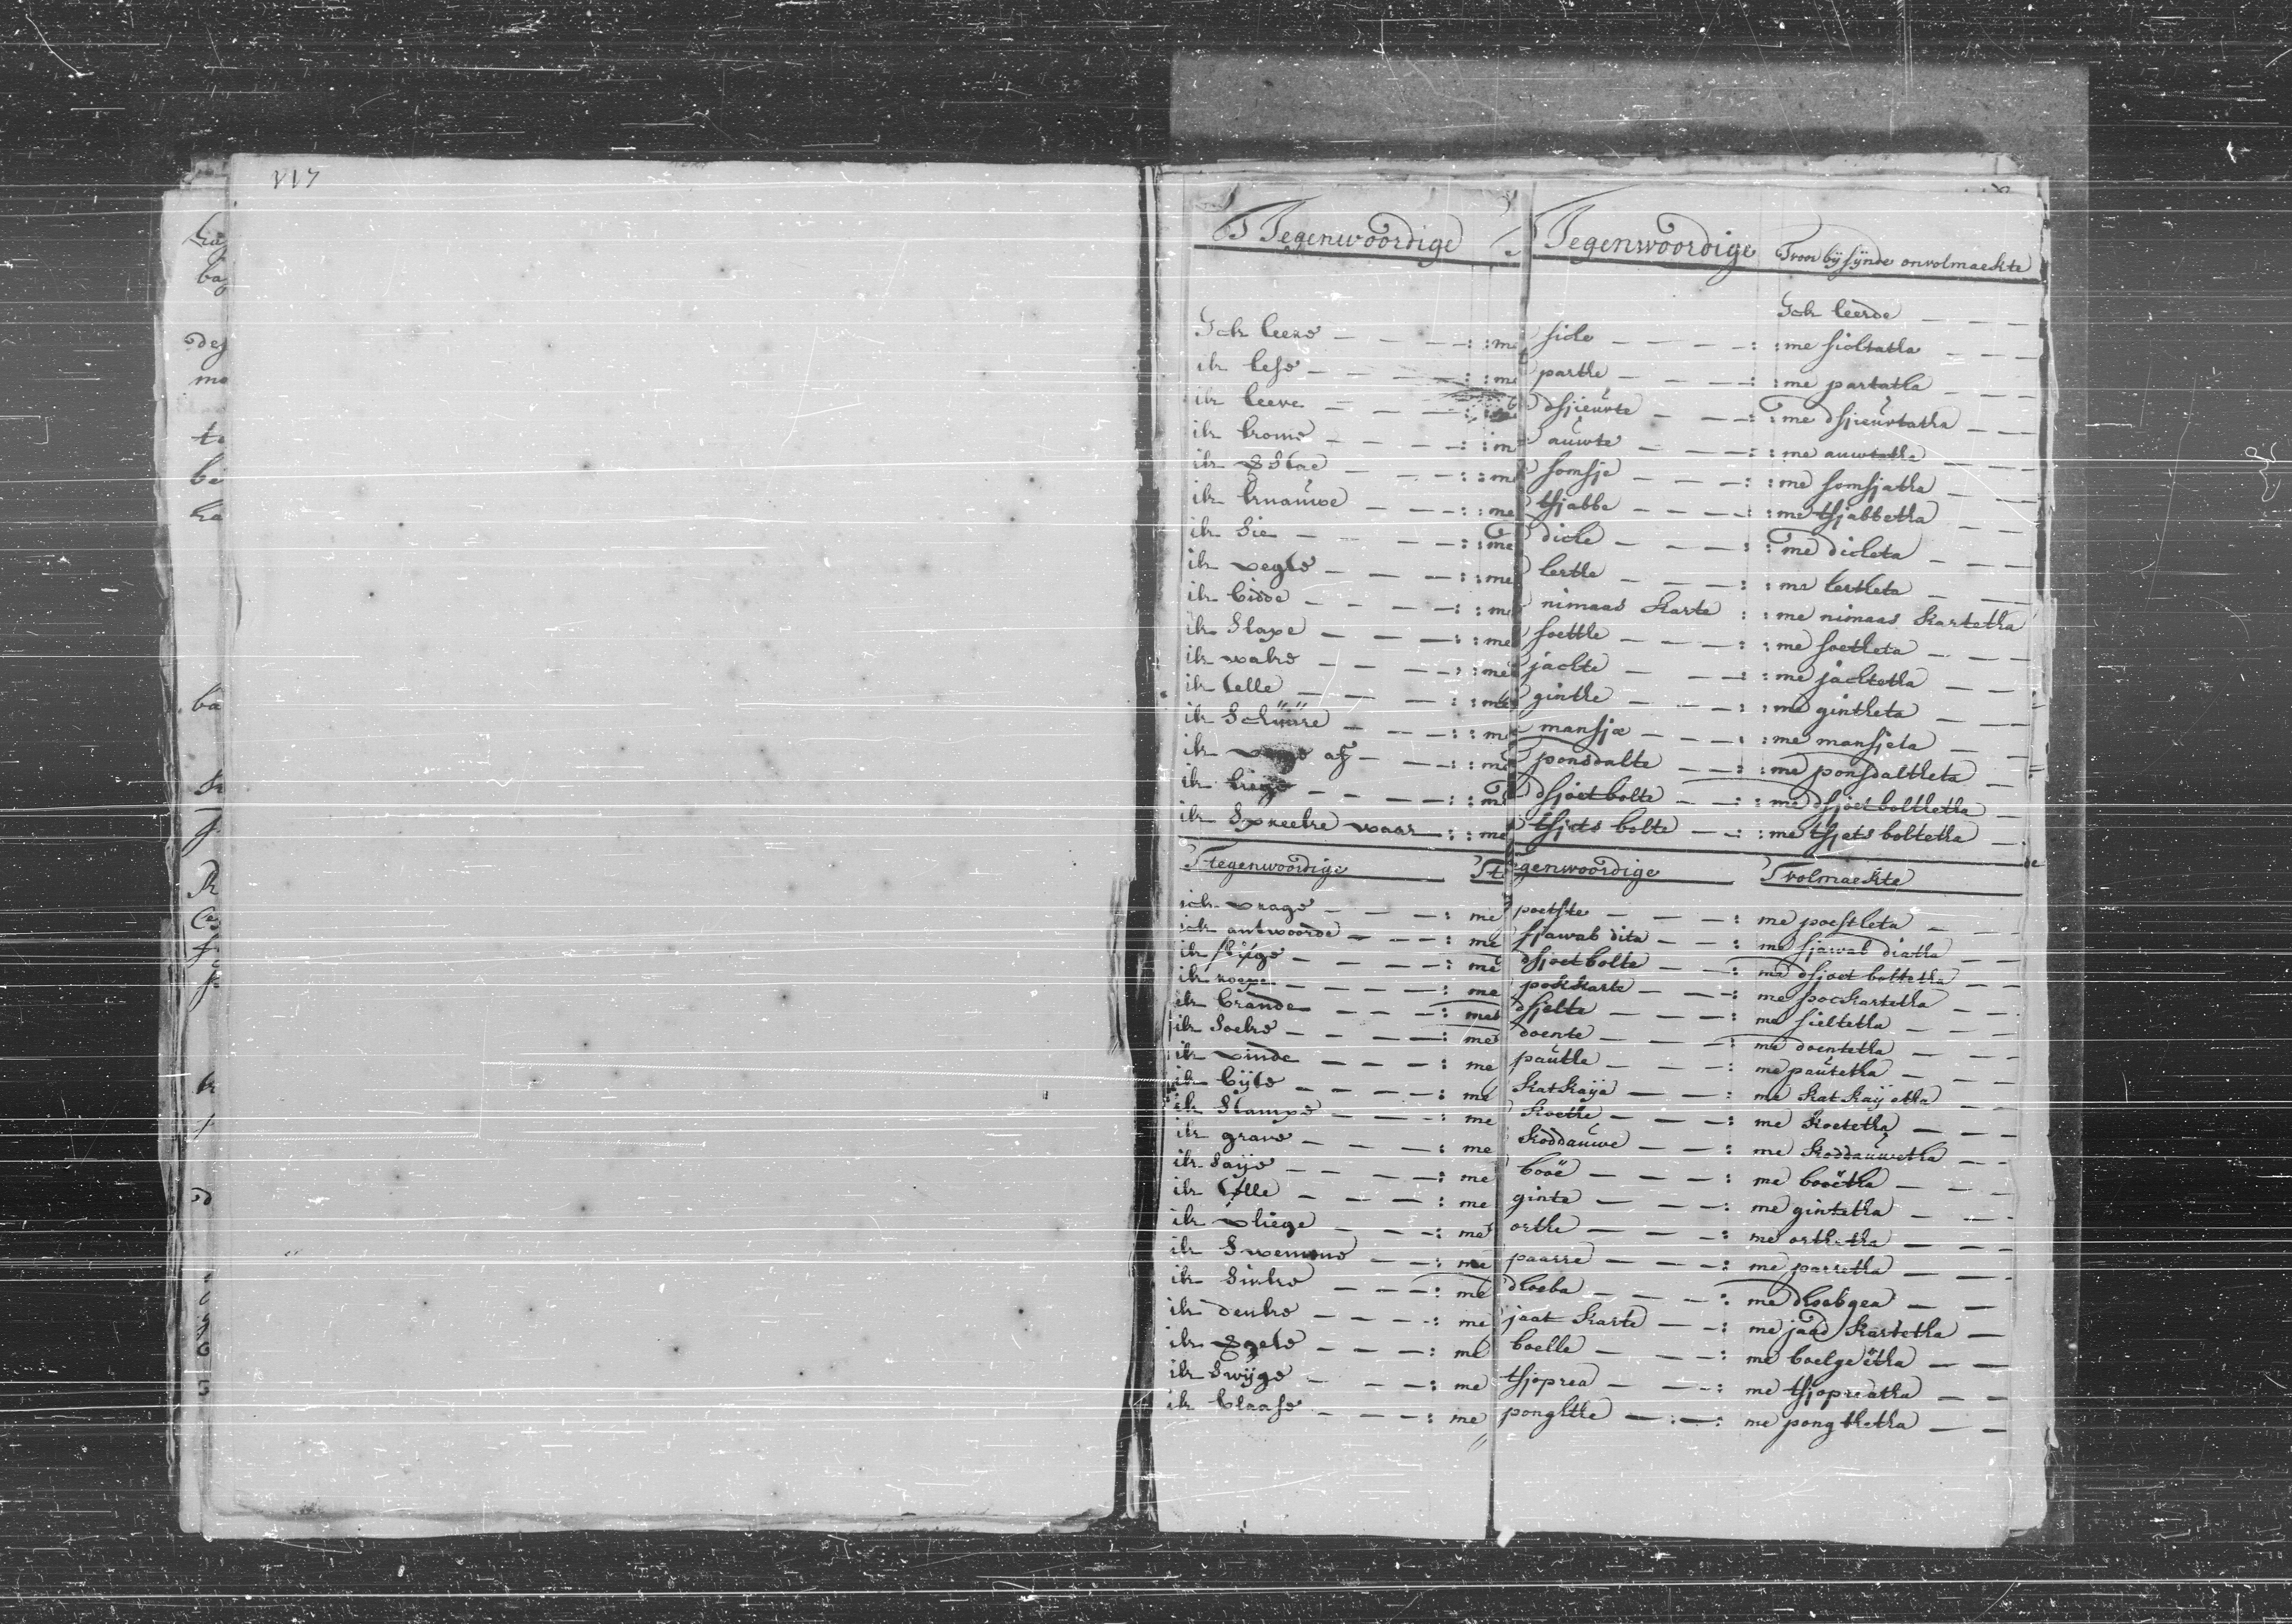 117
T Tegenwoordige Tegenwoordige Tvoorbÿsÿnde onvolmaekte
Ick leerde
Ick leere : : me sicke : : me sicktatha
ik lese : : me partke : : me partatha
ik leeve dsjieuvte : : me dsjieuvtatha
ik kome auwte : : me auwtatha
ik somsje : : me somsjatha
ik knauwe : : me tsjabbe : : me tsjabbetha
ik Sie : : me dicke : : me dicketa
ik vegte : : me lertke : : me lertketa
ik bidde : : me nimaas karte : : me nimaas kartetha
ik Slape : : me soetke : : me soetketa
ik wake : : me jackte : : me jacktetha
ik telle : : me gintke : : me gintketa
ik Schuure : : me mansje : : me mansjeta
ik af : : me ponsdalte : : me ponsdaltketa
ik dsjoetbolte : : me dsjoetboltketha
ik Spreeke waar : : me tsjets bolte : : me tsjets boltetha
T tegenwoordige Ttegenwoordige Tvolmaekte
ick vrage : me poetste : me poestketa
ick antwoorde : me sjawab dita : me sjawab diatha
ik : me dsjoetbolte : me dsjoet boltetha
ik roepe : me pokkarte : me pockartetha
ik brande : me dsjelte : me sieltetha
ik Soeke : me doente : me doentetha
ik vinde : me pautke : me pautetha
ik bÿte : me katkaija : me katkaijetha
ik Stampe : me koetke : me koetetha
ik grave : me koddauwe : me koddauwetha
ik Saije : me booë : me booëtha
ik telle : me ginte : me gintetha
ik vliege : me ortke : me orthetha
ik Swemme : me paarre : me parretha
ik Sinke : me dhoeba : me dhoebgea
ik denke : me jaat karte : me jaad kartetha
ik : me boelle : me boelgeëtha
ik Swÿge : me tsjoprea : me tsjopreatha
ik blaase : me ponghtke : me pongthetha